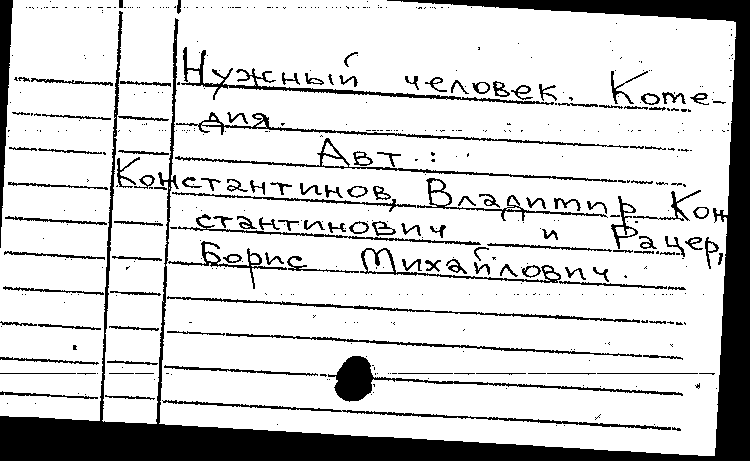 Нужный человек. Коме-
дия.
Авт.:
Константинов, Владимир Кон
стантинович и Рацер,
Борис Михайлович.